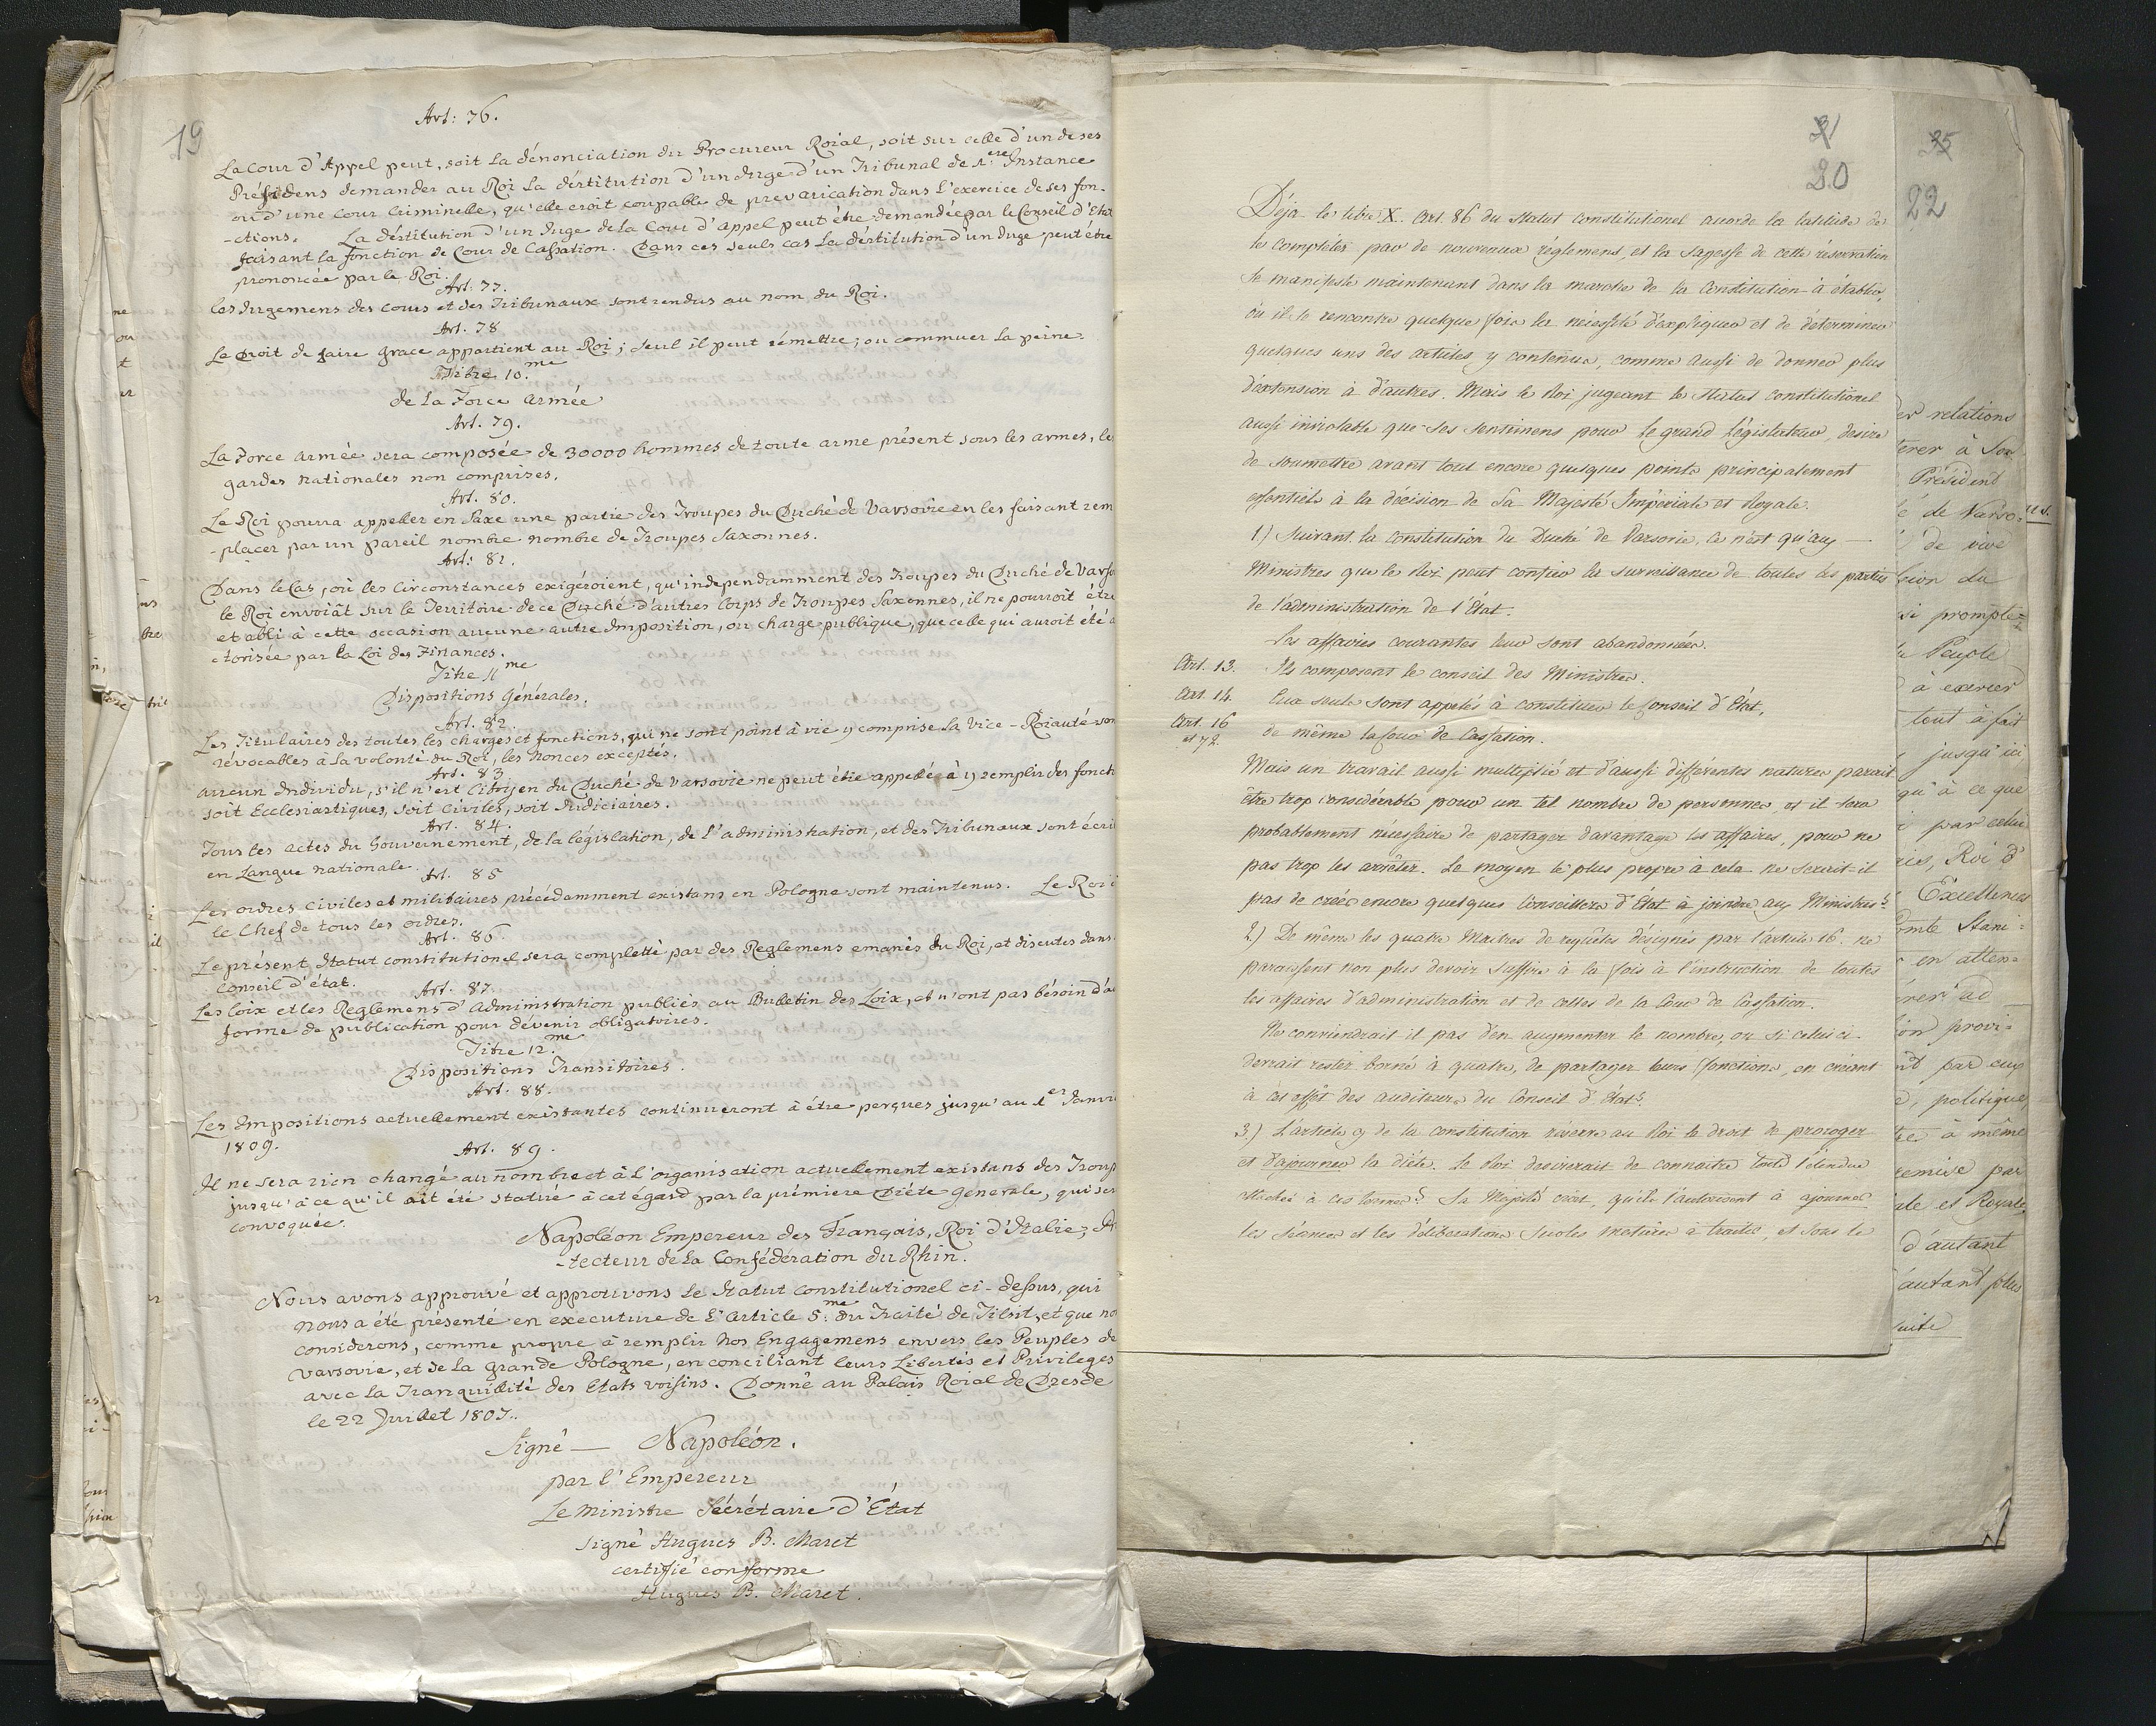 19
Art: 76.
La Cour d'Appel peut, soit la dénonciation du Procureur Roial, soit sur celle d'un de ses
Présidens demander au Roi la déstitution d'un Juge d'un Tribunal de 1.ere Instance
ou d'une Cour Criminelle, qu'elle croit coupable de prevarication dans l'exercice de ses fon-
-ctions. La déstitution d'un Juge de la Cour d'appel peut étre demandée par le Conseil d'Etat
faisant la fonction de Cour de Cassation. Dans ces seuls cas la déstitution d'un Juge peut étre
prononcée par le Roi.
Art: 77.
les Jugemens des Cours et des Tribunaux sont rendus au nom du Roi.
Art. 78
Le Droit de faire grace appartient au Roi; seul il peut rémettre; ou commuer la peine.
Titre 10.me
de la Force armée
Art. 79.
La Force armée sera composée de 30000 hommes de toute arme présent sous les armes, le
gardes nationales non comprises.
Art. 80.
Le Roi pourra appeller en Saxe une partie des Troupes du Duché de Varsovie en les faisant rem
-placer par un pareil nombre nombre de Troupes Saxonnes.
Art: 81.
Dans le Cas, où les Circonstances exigéroient, qu'independamment des Troupes du Duché de Varso
le Roi envoiât sur le Territoire de ce Duché d'autres Corps de Troupes Saxonnes, il ne pourroit étre
etabli à cette occasion aucune autre Imposition, ou charge publique, que celle qui auroit été a
-ctorisée par la Loi des Finances.
Titre 11.me
Dispositions Générales.
Art. 82.
Les Titulaires des toutes les charges et fonctions, qui ne sont point à vie y comprise la Vice-Roiauté son
révocables à la volonté du Roi, les Nonces exceptés.
Art. 83
aucun Individu, s'il n'est Citoijen du Duché de Varsovie ne peut étre appellé à y remplir des fonct
soit Ecclesiastiques, soit Civiles, soit Judiciaires.
Art. 84.
Tous les actes du Gouvernement, de la législation, de l'administration, et des Tribunaux sont écri
en Langue nationale.
Art. 85
Les ordres civiles et militaires précédamment existans en Pologne sont maintenus. Le Roi e
le Chef de tous les ordres.
Art. 86.
Le présent Statut constitutionel sera completté par des Reglemens emanés du Roi, et discutes dans
Conseil d'état.
Art. 87.
Les loix et les Reglemens d'administration publiés au Bulletin des Loix, et n'ont pas bésoin d'au
forme de publication pour dévenir obligatoires.
Titre 12.me
Dispositions Transitoires.
Art. 88.
Les Impositions actuellement existantes continueront à étre perçues jusqu'au 1er Janvi
1809.
Art. 89.
Il ne sera rien changé au nombre et à l'organisation actuellement existans des Troup
jusqu'à ce qu'il ait été statué à cet égard par la prémiere Diéte Generale, qui ser
convoquée.
Napoléon Empereur des Français, Roi d'Italie, Pr
-tecteur de la Confédération du Rhin.
Nous avons approuvé et approuvons le Statut Constitutionel ci-dessus, qui
nous a été présenté en execution de l'Article 5.me du Traité de Tilsit, et que no
considerons, comme propre à remplir nos Engagemens envers les Peuples de
Varsovie, et de la grande Pologne, en conciliant leurs Libertés et Privileges
avec la Tranquillité des Etats voisins. Donné au Palais Roial de Dresde
le 22 Juillet 1807.
Signé — Napoléon.
par l'Empereur
Le Ministre Sécrétaire d'État
signé Hugues B. Maret
certifié conforme
Hugues B. Maret.
20
Déja le titre X. Art. 86 du Statut constitutionel acorde la latitude de
le completer par de nouveaux réglemens, et la sagesse de cette réservation
se manifeste maintenant dans la marche de la Constitution à établir,
où il se rencontre quelque fois la nécessité d'expliquer et de déterminer
quelques uns des articles y contenus, comme aussi de donner plus
d'extension à d'autres. Mais le Roi jugeant le Statut constitutionel
aussi inviolable que ses sentimens pour le grand Législateur, desire
de soumettre avant tout encore quelques points principalement
essentiels à la décision de Sa Majesté Impériale et Royale.
1) Suivant la constitution du Duché de Varsovie, ce n'est qu'aux
Ministres que le Roi peut confier la surveillance de toutes les parties
de l'administration de l'État.
Les affaires courantes leur sont abandonnées.
Art. 13. Ils composent le conseil des Ministres.
Art. 14. Eux seuls sont appelés à constituer le Conseil d'État,
Art. 16 et 72. de même la Cour de Cassation.
Mais un travail aussi multiplié et d'aussi différentes natures parait
être trop considérable pour un tel nombre de personnes, et il sera
probablement nécessaire de partager davantage les affaires, pour ne
pas trop les arrêter. Le moyen le plus propre à cela ne serait-il
pas de créer encore quelques Conseillers d'État à joindre aux Ministres?
2.) De même les quatre Maitres de requêtes désignés par l'article 16. ne
paraissent non plus devoir suffire à la fois à l'instruction de toutes
les affaires d'administration et de celles de la Cour de Cassation.
Ne conviendrait il pas d'en augmenter le nombre, ou si celui ci
devrait rester borné à quatre, de partager leurs fonctions, en créant
à cet effet des auditeurs du Conseil d'État?
3.) L'article 9 de la constitution réserve au Roi le droit de proroger
et d'ajourner la diète. Le Roi desirerait de connaitre toute l'étendue
attachée à ces termes? Sa Majesté croit, qu'ils l'autorisent à ajourner
les séances et les délibérations sur les matières à traiter, et sous le
35
22
er relations
érer à Son
Président
é de Varso=
de vive
sion du
si prompte=
Peuple
à exercer
tout à fait
jusqu'ici
qu'à ce que
par celui
ries, Roi d'
Excellences
omte Stani=
en atten=
érer ad
ion provi=
nt par eux
politique,
tre à même
remise par
ale et Royale,
d'autant
autant plus
suite